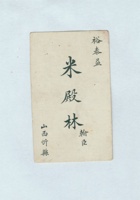 裕泰益
米殿林
翰臣
山西忻縣